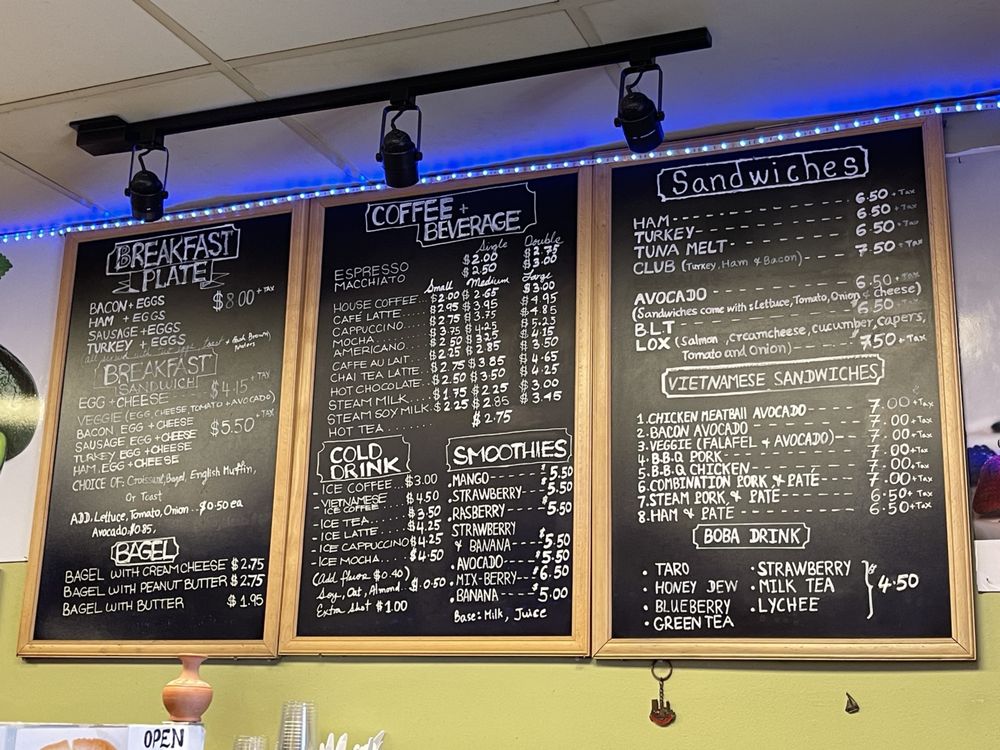 BREAKFAST
PLATE
BACON + EGGS $8.00 + TAX
HAM + EGGS
SAUSAGE + EGGS
TURKEY + EGGS
BREAKFAST
SANDWICH
EGG + CHEESE $4.15 + TAX
VEGGIE (EGG, CHEESE, TOMATO + AVOCADO)
BACON EGG + CHEESE $5.50 + TAX
SAUSAGE EGG + CHEESE
TURKEY EGG + CHEESE
HAM, EGG + CHEESE
CHOICE OF: Croissant, Bagel, English Muffin,
Or Toast
ADD, Lettuce, Tomato, Onion.. $0.50 ea
Avocado $0.85,
BAGEL
BAGEL WITH CREAM CHEESE $2.75
BAGEL WITH PEANUT BUTTER $2.75
BAGEL WITH BUTTER $1.95
COFFEE +
BEVERAGE
Single Double
ESPRESSO $2.00 $2.75
MACCHIATO $2.50 $3.00
Small Medium Large
HOUSE COFFEE.. $2.00 $2.65 $3.00
CAFÉ LATTE.... $2.95 $3.95 $4.95
CAPPUCCINO.... $2.75 $3.75 $4.85
MOCHA........ $3.75 $4.25 $5.25
AMERICANO.... $2.50 $3.25 $4.15
CAFFE AU LAIT... $2.25 $2.85 $3.50
CHAI TEA LATTE.. $2.75 $3.85 $4.65
HOT CHOCOLATE.. $2.50 $3.50 $4.25
STEAM MILK.... $1.75 $2.25 $3.00
STEAM SOY MILK.. $2.25 $2.85 $3.45
HOT TEA........ $2.75
COLD
DRINK
- ICE COFFEE... $3.00
- VIETNAMESE
ICE COFFEE $4.50
- ICE TEA..... $3.50
- ICE LATTE.... $4.25
- ICE CAPPUCCINO $4.25
- ICE MOCHA... $4.50
(Add flavor $0.40)
Soy, Oat, Almond...} $0.50
Extra Shot $1.00
SMOOTHIES
.MANGO---- $5.50
.STRAWBERRY-- $5.50
.RASBERRY---- $5.50
STRAWBERRY
& BANANA--- $5.50
.AVOCADO---- $5.50
.MIX-BERRY--- $6.50
.BANANA---- $5.00
Base: Milk, Juice
Sandwiches
HAM- - - - - - - - 6.50 + Tax
TURKEY- - - - - - - 6.50 + Tax
TUNA MELT- - - - - - 6.50 + Tax
CLUB (Turkey, Ham & Bacon)- - - - 7.50 + Tax
AVOCADO - - - - - - - 6.50 + Tax
(Sandwiches come with: Lettuce, Tomato, Onion & cheese)
B.L.T - - - - - - - 6.50 + Tax
LOX (Salmon, creamcheese, cucumber, capers,
Tomato and Onion)- - - - 7.50 + Tax
VIETNAMESE SANDWICHES
1. CHICKEN MEATBALL AVOCADO- - - - 7.00 + Tax
2. BACON AVOCADO - - - - - - 7.00 + Tax
3. VEGGIE (FALAFEL & AVOCADO)- - - 7.00 + Tax
4. B.B.Q PORK - - - - - - - 7.00 + Tax
5. B.B.Q CHICKEN - - - - - - 7.00 + Tax
6. COMBINATION PORK & PATÉ - - - - 7.00 + Tax
7. STEAM PORK & PATÉ - - - - - 6.50 + Tax
8. HAM & PATÉ - - - - - - - 6.50 + Tax
BOBA DRINK
• TARO
• HONEY DEW
• BLUEBERRY
• GREEN TEA
• STRAWBERRY
• MILK TEA } $4.50
• LYCHEE
OPEN